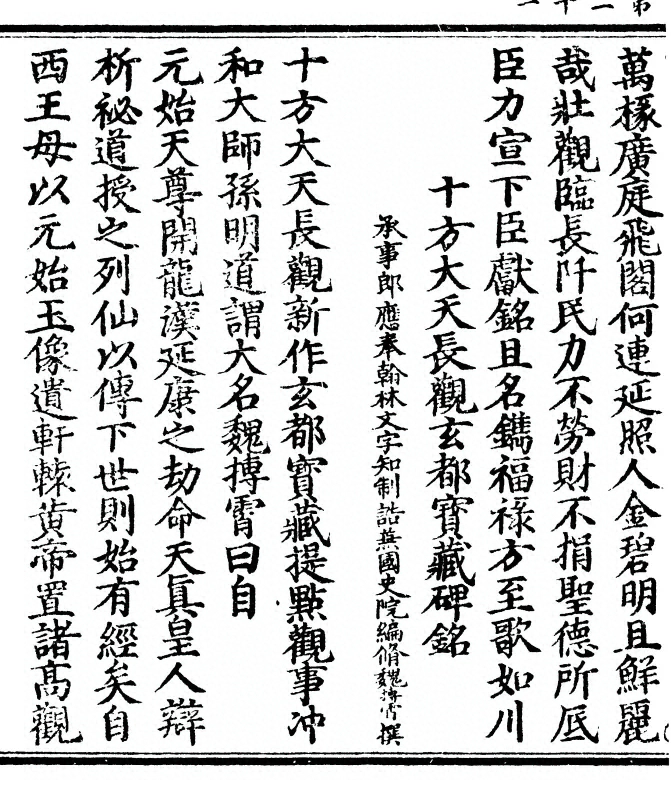 萬椽廣庭飛閣何連延照人金碧明且鮮麗
哉壯觀臨長阡民力不勞財不捐聖德所底
臣力宣下臣獻銘且名鐫福祿方至歌如川
十方大天長觀玄都寶藏碑銘
承事郎應奉翰林文字知制誥兼國史院編脩魏摶霄撰
十方大天長觀新作玄都寶藏提點觀事冲
和大師孫明道謂大名魏摶霄曰自
元始天尊開龍漢延康之劫命天真皇人辯
析祕道授之列仙以傳下世則始有經矣自
西王母以元始玉像遺軒轅黃帝置諸高觀